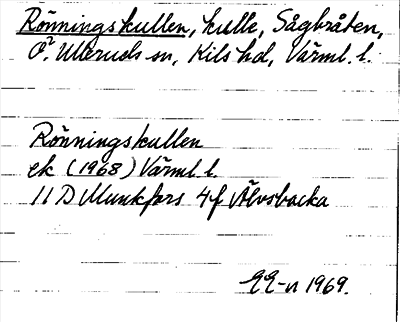 Rönningskullen, kulle, Sågbråten,
Ö. Ulleruds sn, Kils hd, Värml. l.
Rönningskullen
ek (1968) Värml. l.
11 D Munkfors 4f Älvsbacka
1969.